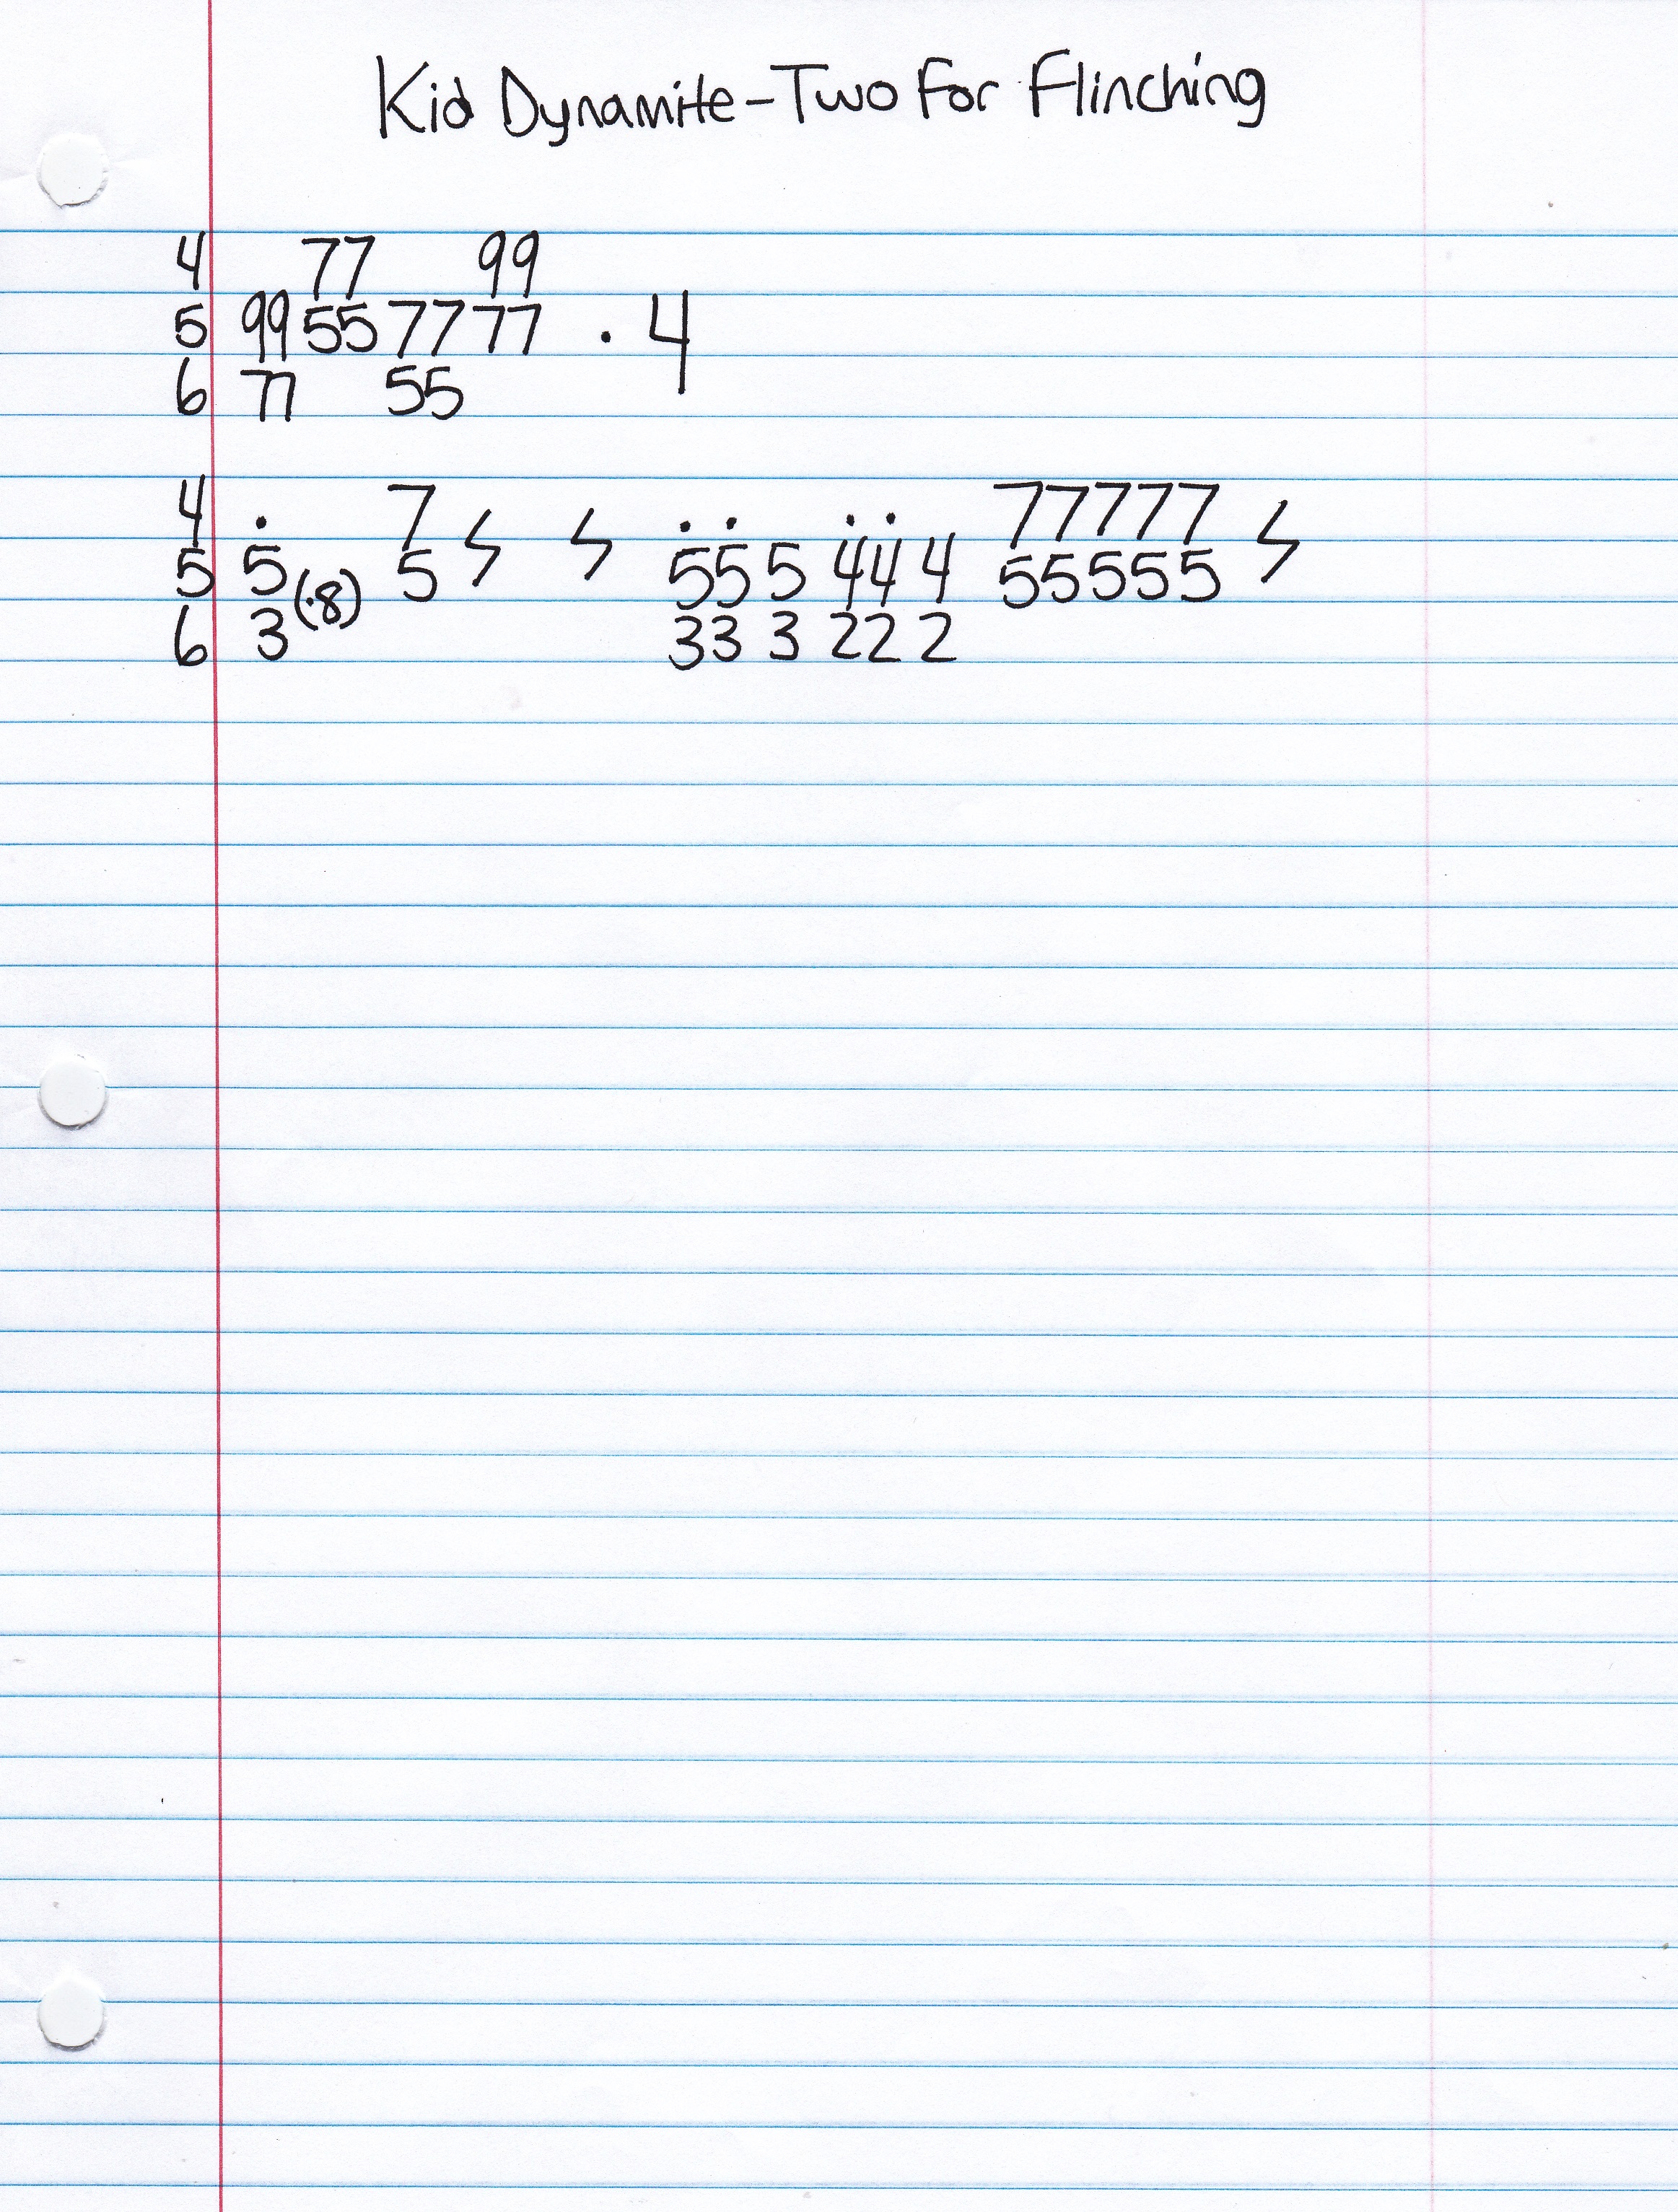 Kid Dynamite-Two For Flinching
4 77 99
5 99 55 77 77 · 4
6 77 55
4 · 7 ϟ ϟ ·· ·· 77777 ϟ
5 5 (·8) 5 55 5 44 4 55555
6 3 33 3 22 2